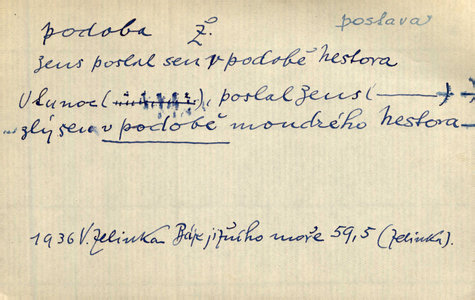 podoba ž. postava
Zeus poslal sen v podobě Nestora
V tu noc (), poslal Zeus (———)
zlý sen v podobě moudrého Nestora
1936 V. Zelinka Báje jižního moře 59,5 (Zelinka).